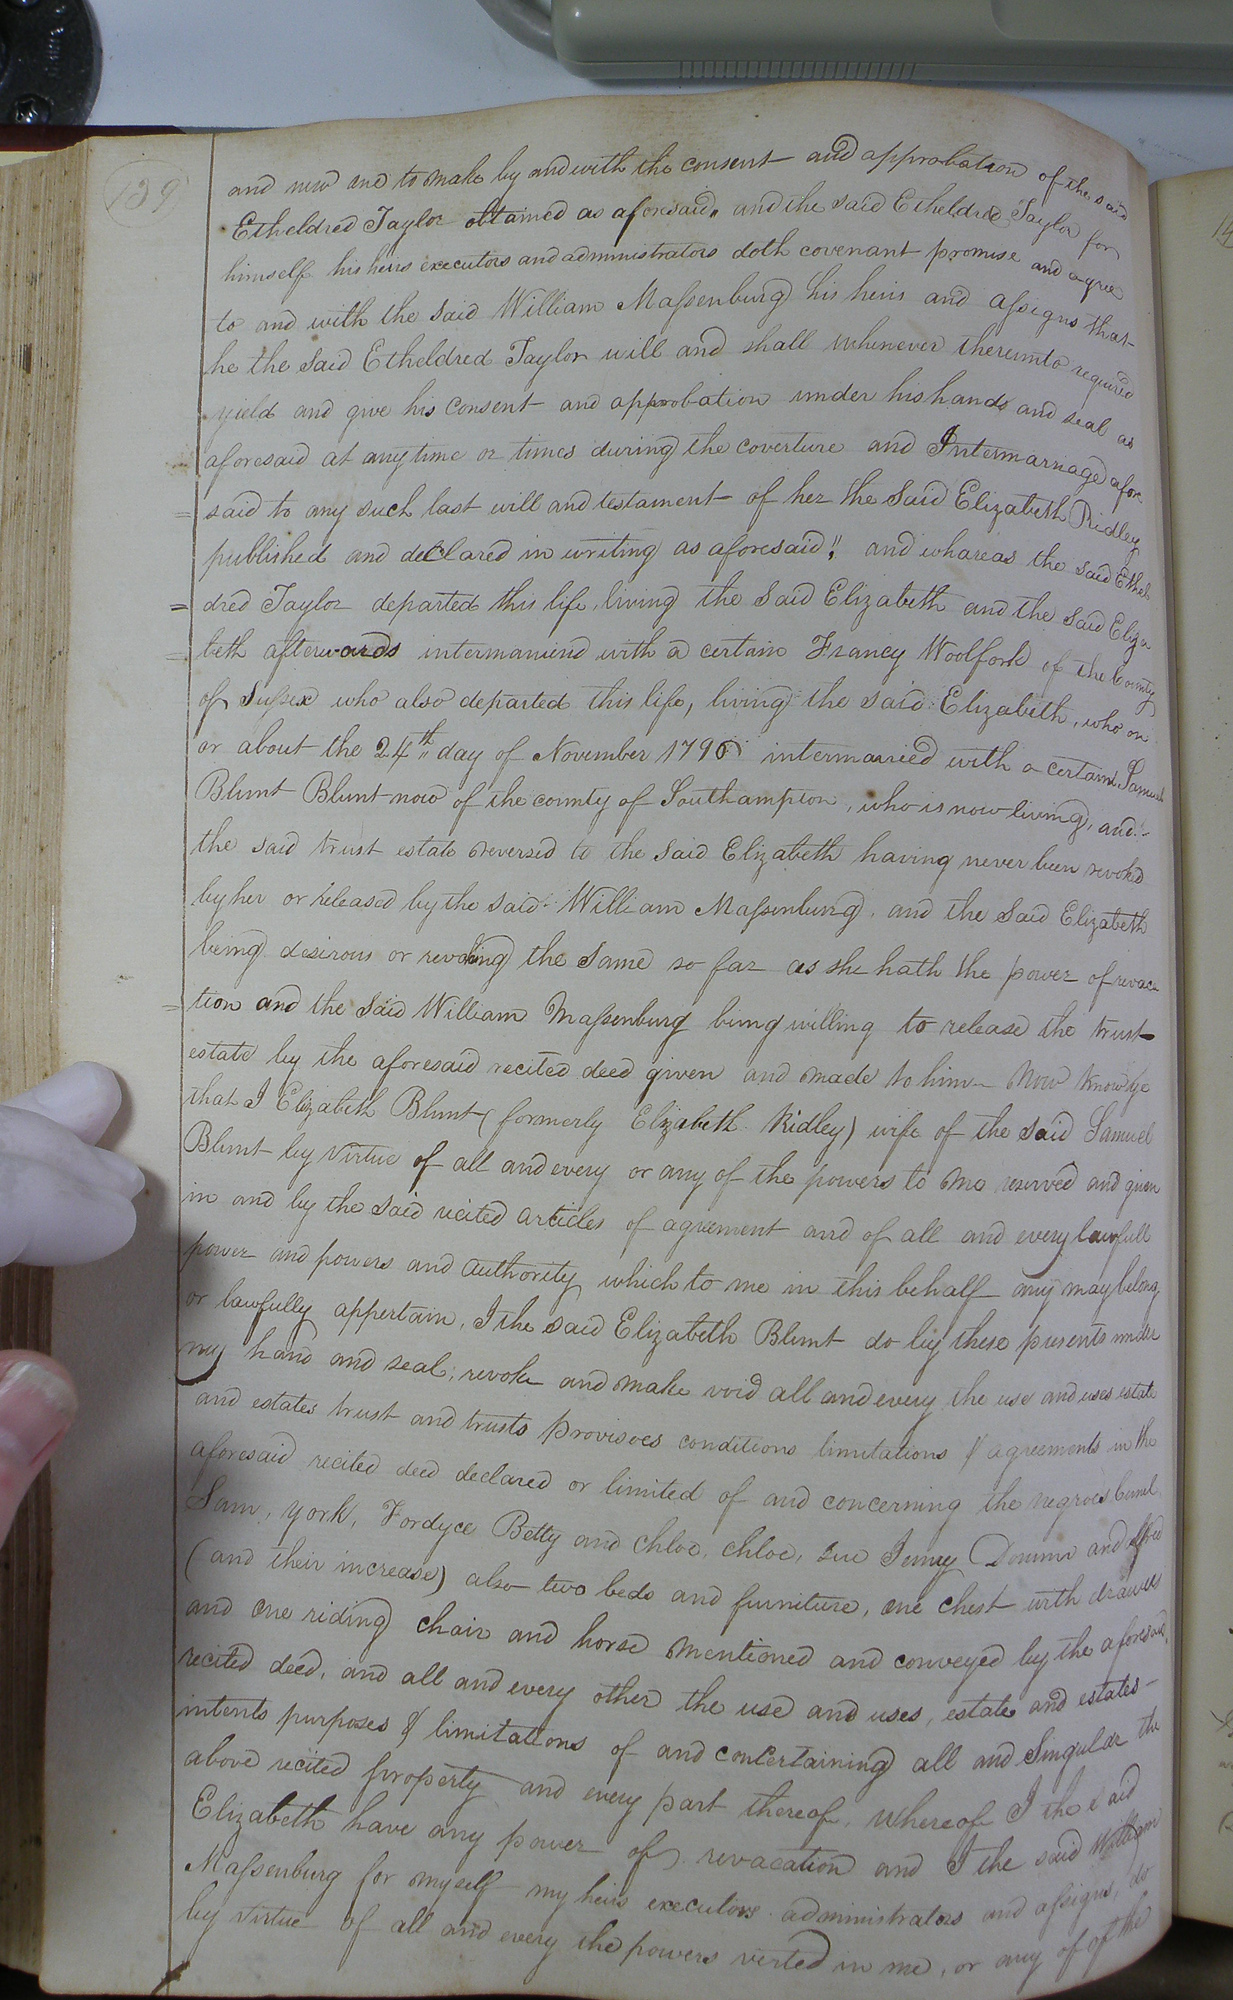 139
and new and to make by and with the consent and approbation of the said
Etheldred Taylor obtained as aforesaid, and the said Etheldred Taylor for
himself his heirs executors and administrators doth covenant promise and agree
to and with the said William Massenburg his heirs and assigns that
he the said Etheldred Taylor will and shall whenever thereunto required
yield and give his consent and approbation under his hands and seal as
aforesaid at any time or times during the coverture and Intermarriage afore
= said to any such last will and testament of her the said Elizabeth Ridley
published and declared in writing as aforesaid!! and whareas the said Ethel
= dred Taylor departed this life, living the said Elizabeth and the said Eliza
= beth afterwards intermarried with a certain Francy Woolfork of the County
of Sussex who also departed this life, living the said Elizabeth, who on
or about the 24th day of November 1796 intermarried with a certain Samuel
Blunt Blunt now of the county of Southampton, who is now living, and
the said trust estate reversed to the said Elizabeth having never been revoked
by her or released by the said William Massenburg, and the said Elizabeth
being desirous or revoking the same so far as she hath the power of revaca
= tion and the said William Massenburg being willing to release the trust
estate by the aforesaid recited deed given and made to him Now Know ye
that I Elizabeth Blunt (formerly Elizabeth Ridley) wife of the said Samuel
Blunt by virtue of all and every or any of the powers to me reserved and given
in and by the said recited articles of agreement and of all and every lawfull
power and powers and authority which to me in this behalf any may belong
or lawfully appertain, I the said Elizabeth Blunt do by these presents under
my hand and seal, revoke and make void all and every the use and uses estate
and estates trust and trusts provisoes conditions limitations & agreements in the
aforesaid recited deed declared or limited of and concerning the negroes
Sam, York, Fordyce Betty and Chloe, Chloe, Sue Jenny and
(and their increase) also two beds and furniture, one chest with drawers
and one riding chair and horse mentioned and conveyed by the aforesaid,
recited deed, and all and every other the use and uses, estate and estates
intents purposes & limitations of and concertaining all and Singular the
above recited property and every part thereof, whereof I the said
Elizabeth have any power of revacation and I the said William
Massenburg for myself my heirs executors administrators and assigns, do
by virtue of all and every the powers vested in me, or any of of the